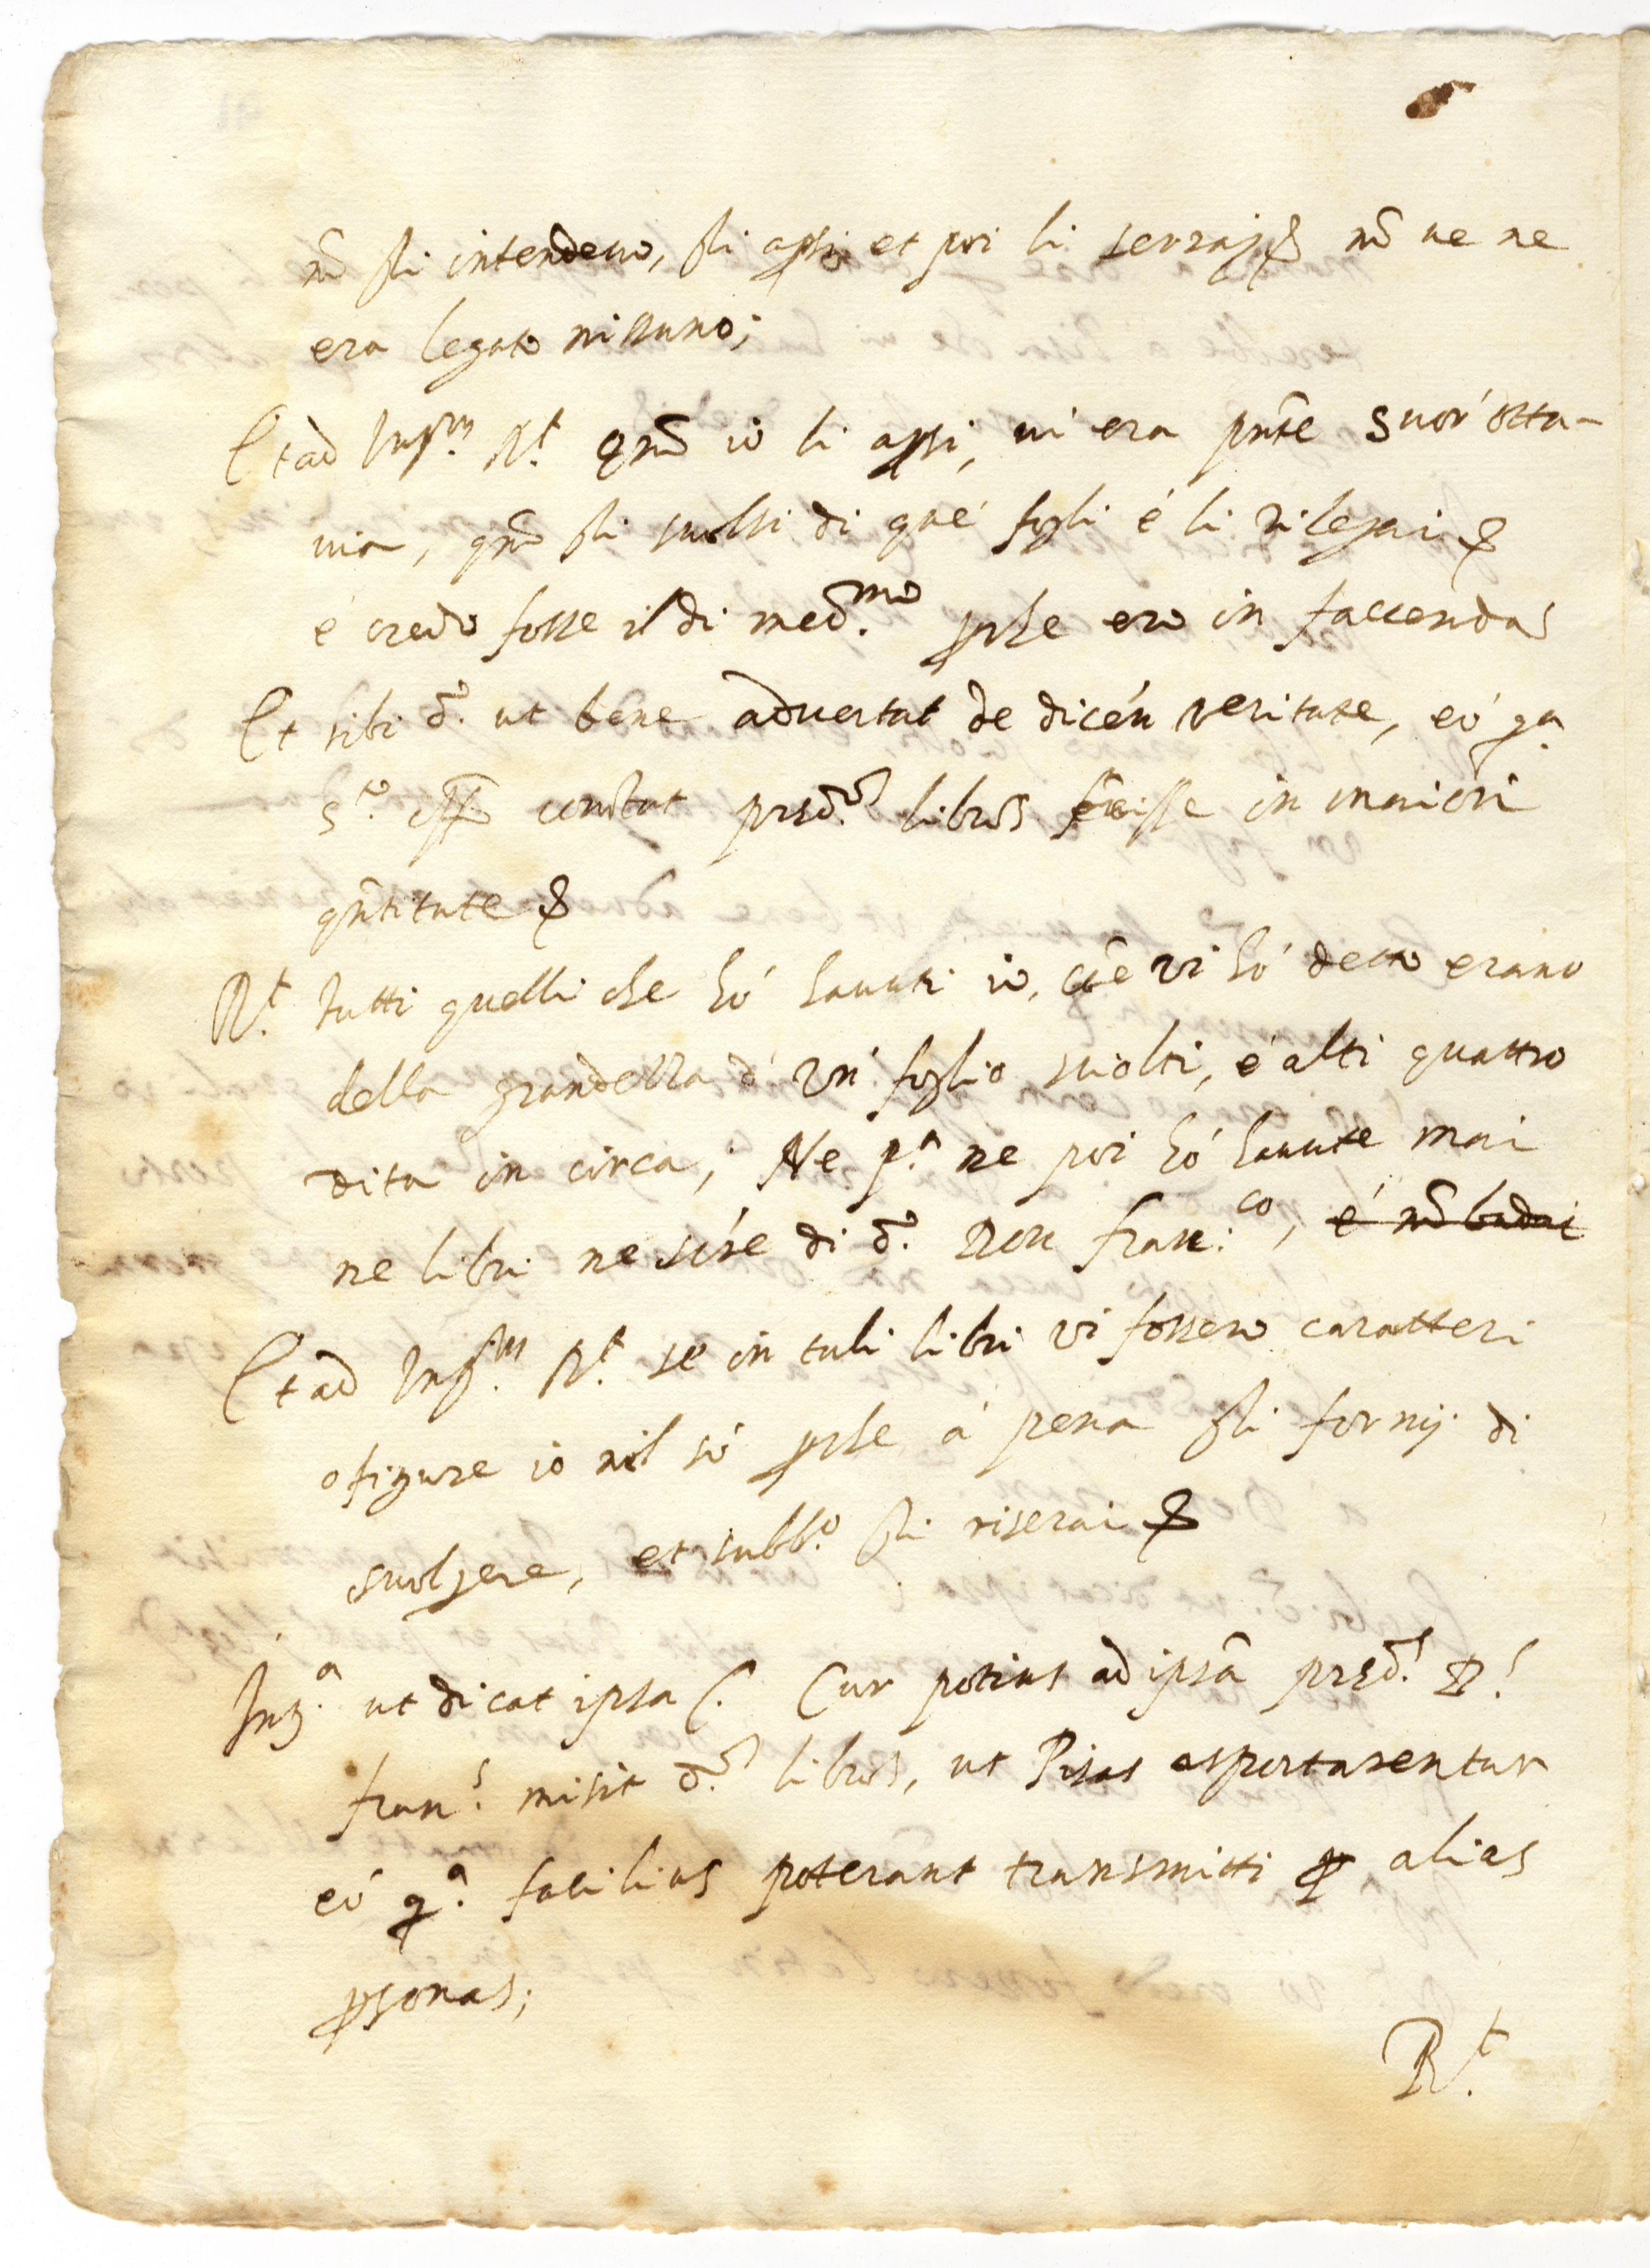 nō gli intendeuo, gli apsi et poi li serrai & nō ue ne
era legato nissuno;
Et ad Int.m R.t Qnō io li apsi, ui era pnte Suor' Otta-
uia, qnō gli suolsi di que' fogli é li rilegai &
é credo fosse il di med.mo pche ero in faccenda &
Et sibi d.o ut bene aduertat de dicén ueritate, eó qa
s.to off.o constat pred.os libros fuisse in maiori
qntitate &
R.t tutti quelli che hó hauuti io, che vi hó detto erano
della grandezza d' un' foglio suolti, é alti quattro
dita in circa; Ne p.a ne poi hó hauute mai
ne libri ne scíre di d.o Don Fran.co, é nō badai
Et ad Int.m R.t se in tali libri vi fossero caratteri
o figure io nol só pche á pena gli fornij di
suolgere, et subb.o gli riserai &
Int.a ut dicat ipsa C. Cur potius ad ipsā pred.s D.s
Fran.s misit d.os libros, ut Pisas asportarentur
eó q.a facilius poterant transmitti p alias
psonas;
R.t